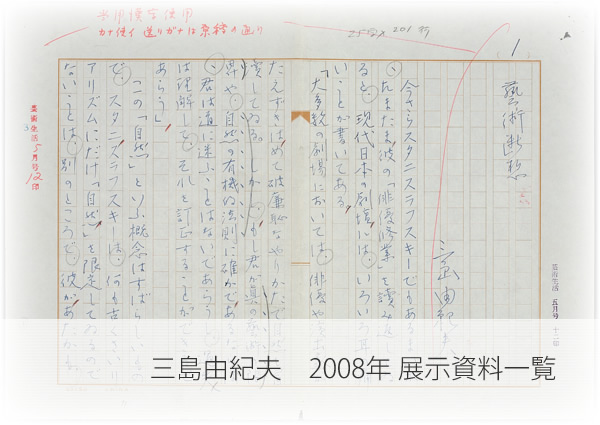 当用漢字使用
カナ使イ 送りガナは原稿の通り
25字×201行
1
藝術断想
三島由紀夫
今さらスタニスラフスキーでもあるま
たまたま彼の「俳優修業」を読み返
ると、現代日本の劇壇には、いろいろ耳
いことが書いてある。
「大多数の劇場においては、俳優や
たえずきはめて破廉恥なやり方で真
瀆してゐる。しかし、もし君が真の
界や、自然の有機的法則に確かであるな
君は道に迷ふことはないであらう
は理解して、それを訂正することがで
あらう」
この「自然」といふ概念はすばらしいもの
で、スタニスラフスキーは、何も古くさいリ
アリズムにだけ「自然」を限定してゐるので
ないことは、別のところで、彼が
芸術生活5月号
12印
芸術生活 五月号 十二印
三島由紀夫 2008年 展示資料一覧